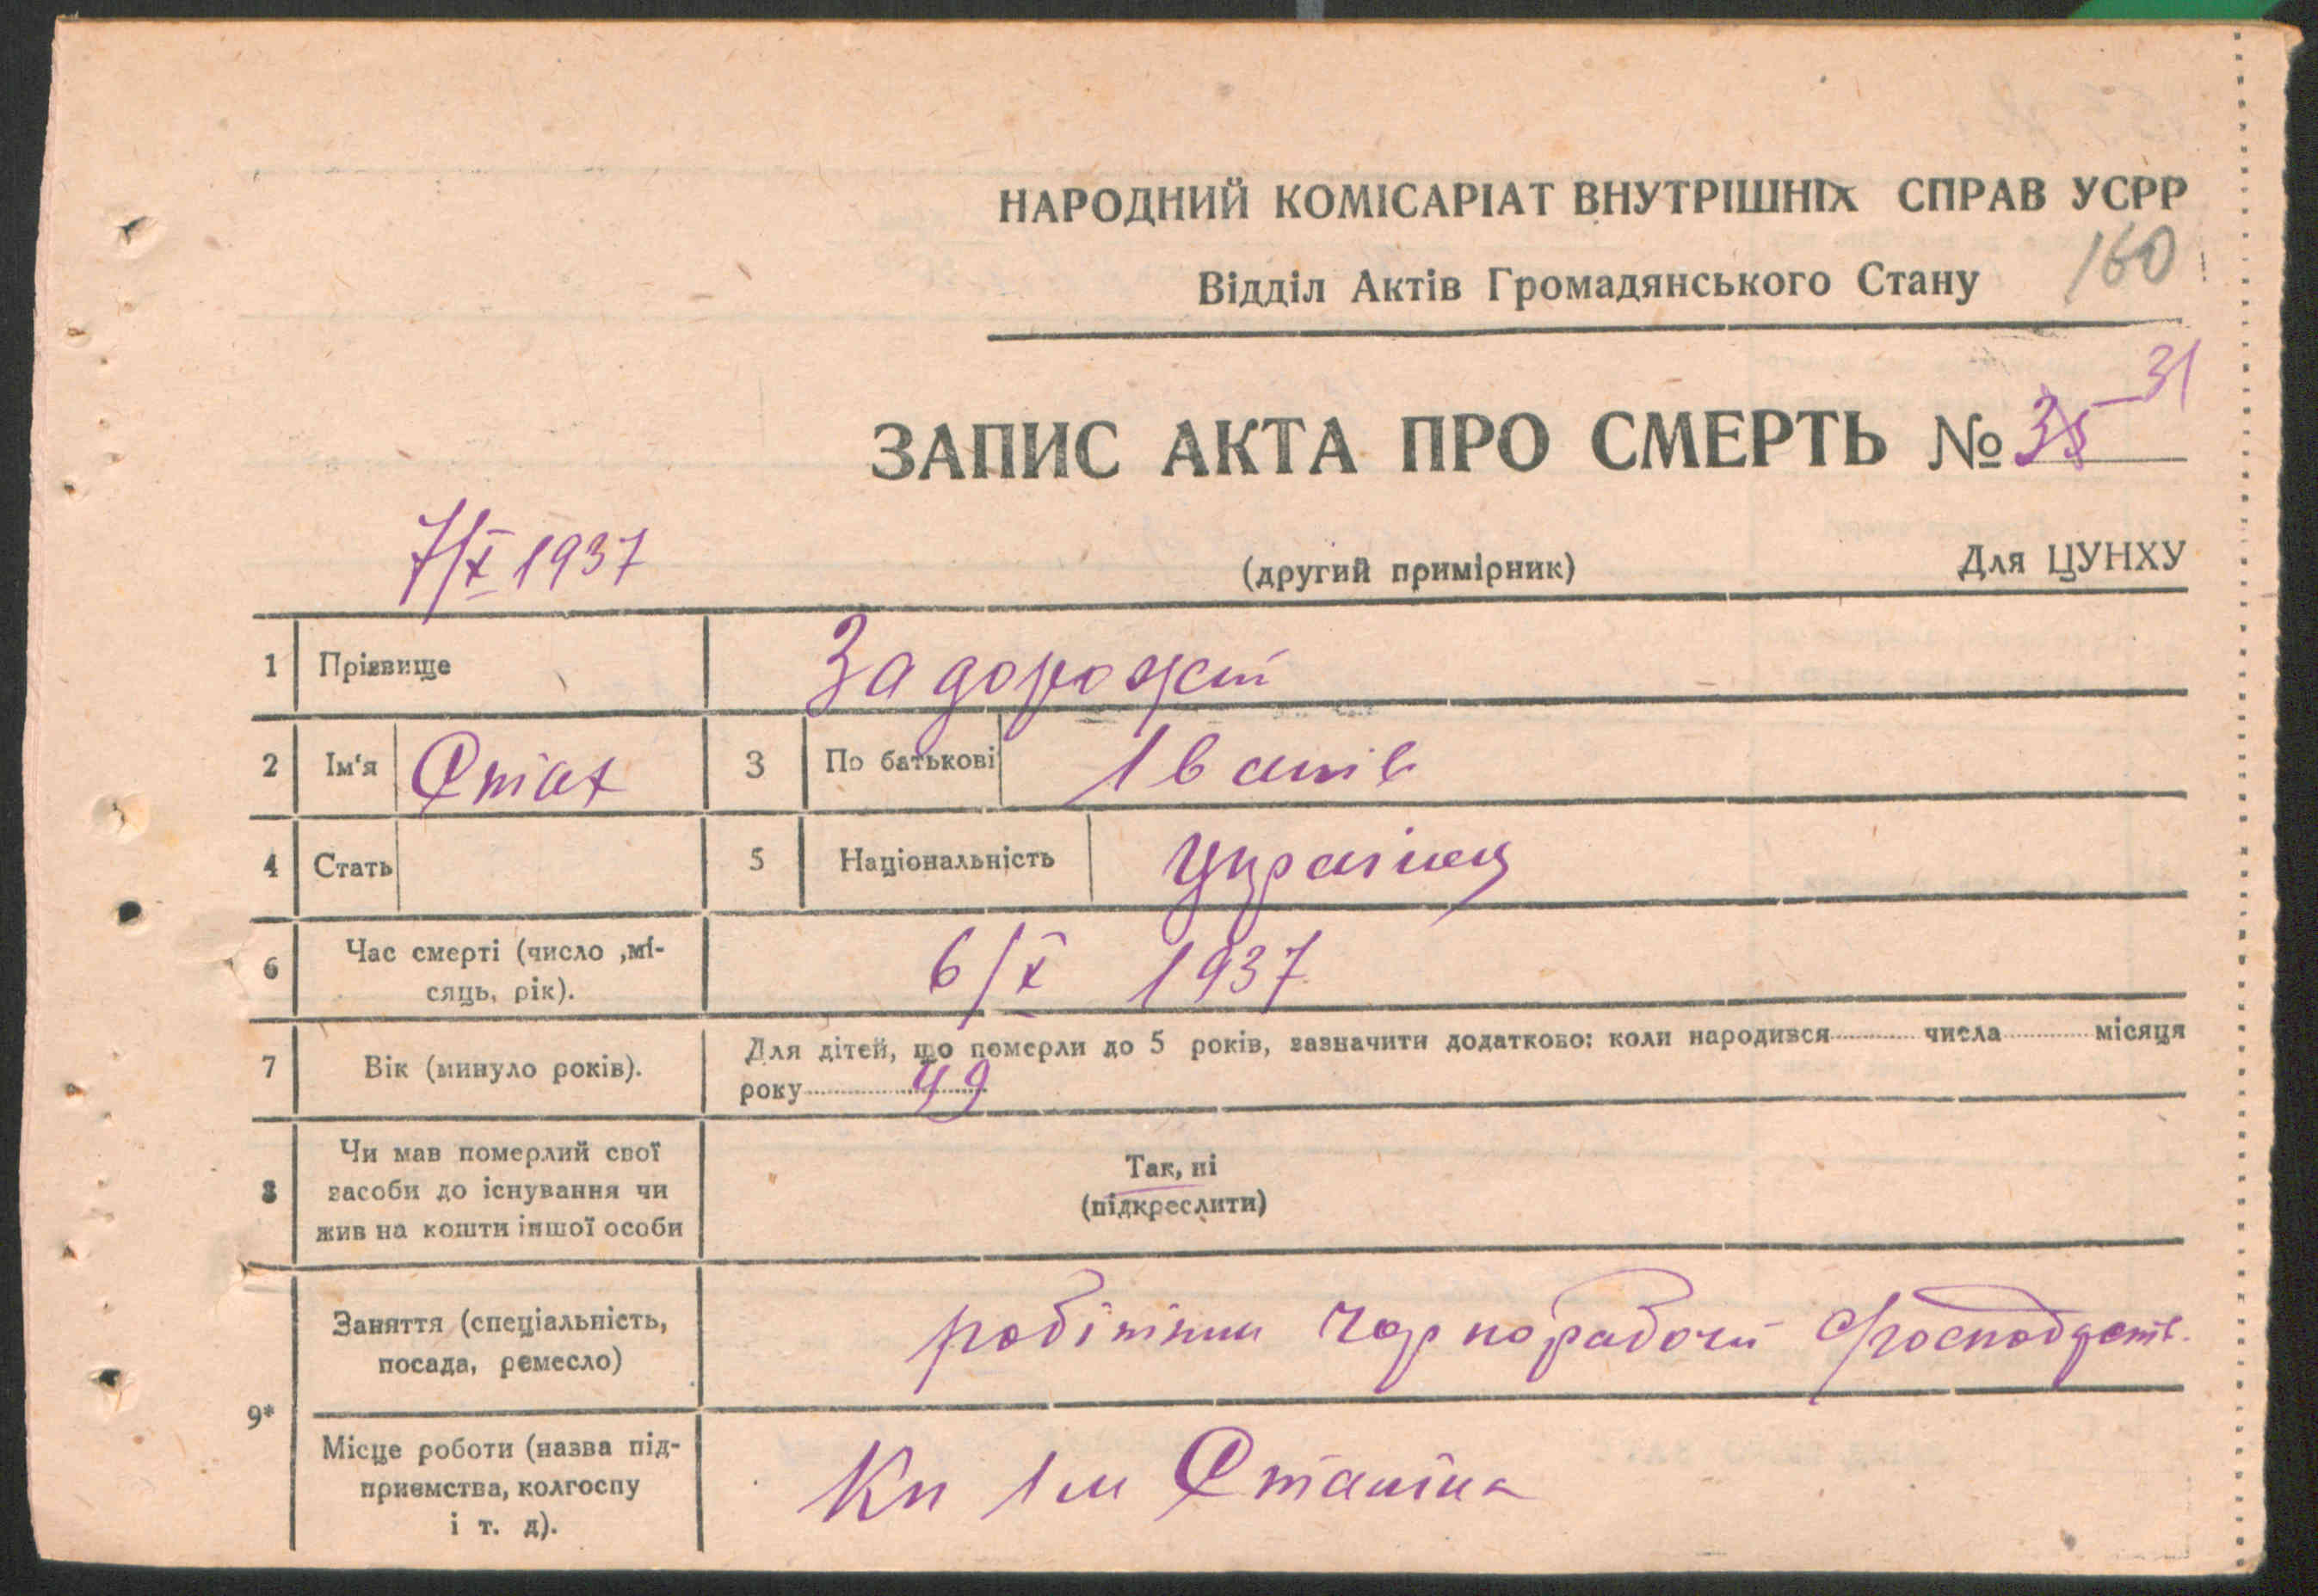 НАРОДНИЙ КОМІСАРІАТ ВНУТРІШНІХ СПРАВ УСРР
160
Відділ Актів Громадянського Стану
31
ЗАПИС АКТА ПРО СМЕРТЬ № 35
7/X 1937
(другий примірник) Для ЦУНХУ
1 Прізвище Задорожні
2 Ім'я 3 По батькові Іванів
4 Стать 5 Національність Українець
6 Час смерті (число ,мі-
сяць, рік). 6/X 1937
7 Вік (минуло років). Для дітей, що померли до 5 років, зазначити додатково: коли народився числа місяця
року 49
8 Чи мав померлий свої
засоби до існування чи
жив на кошти іншої особи
Так, ні
(підкреслити)
9* Заняття (спеціальність,
посада, ремесло)
робітник чорнорабочи
Місце роботи (назва під-
приємства, колгоспу
і т. д).
Кп Ім Сталіна